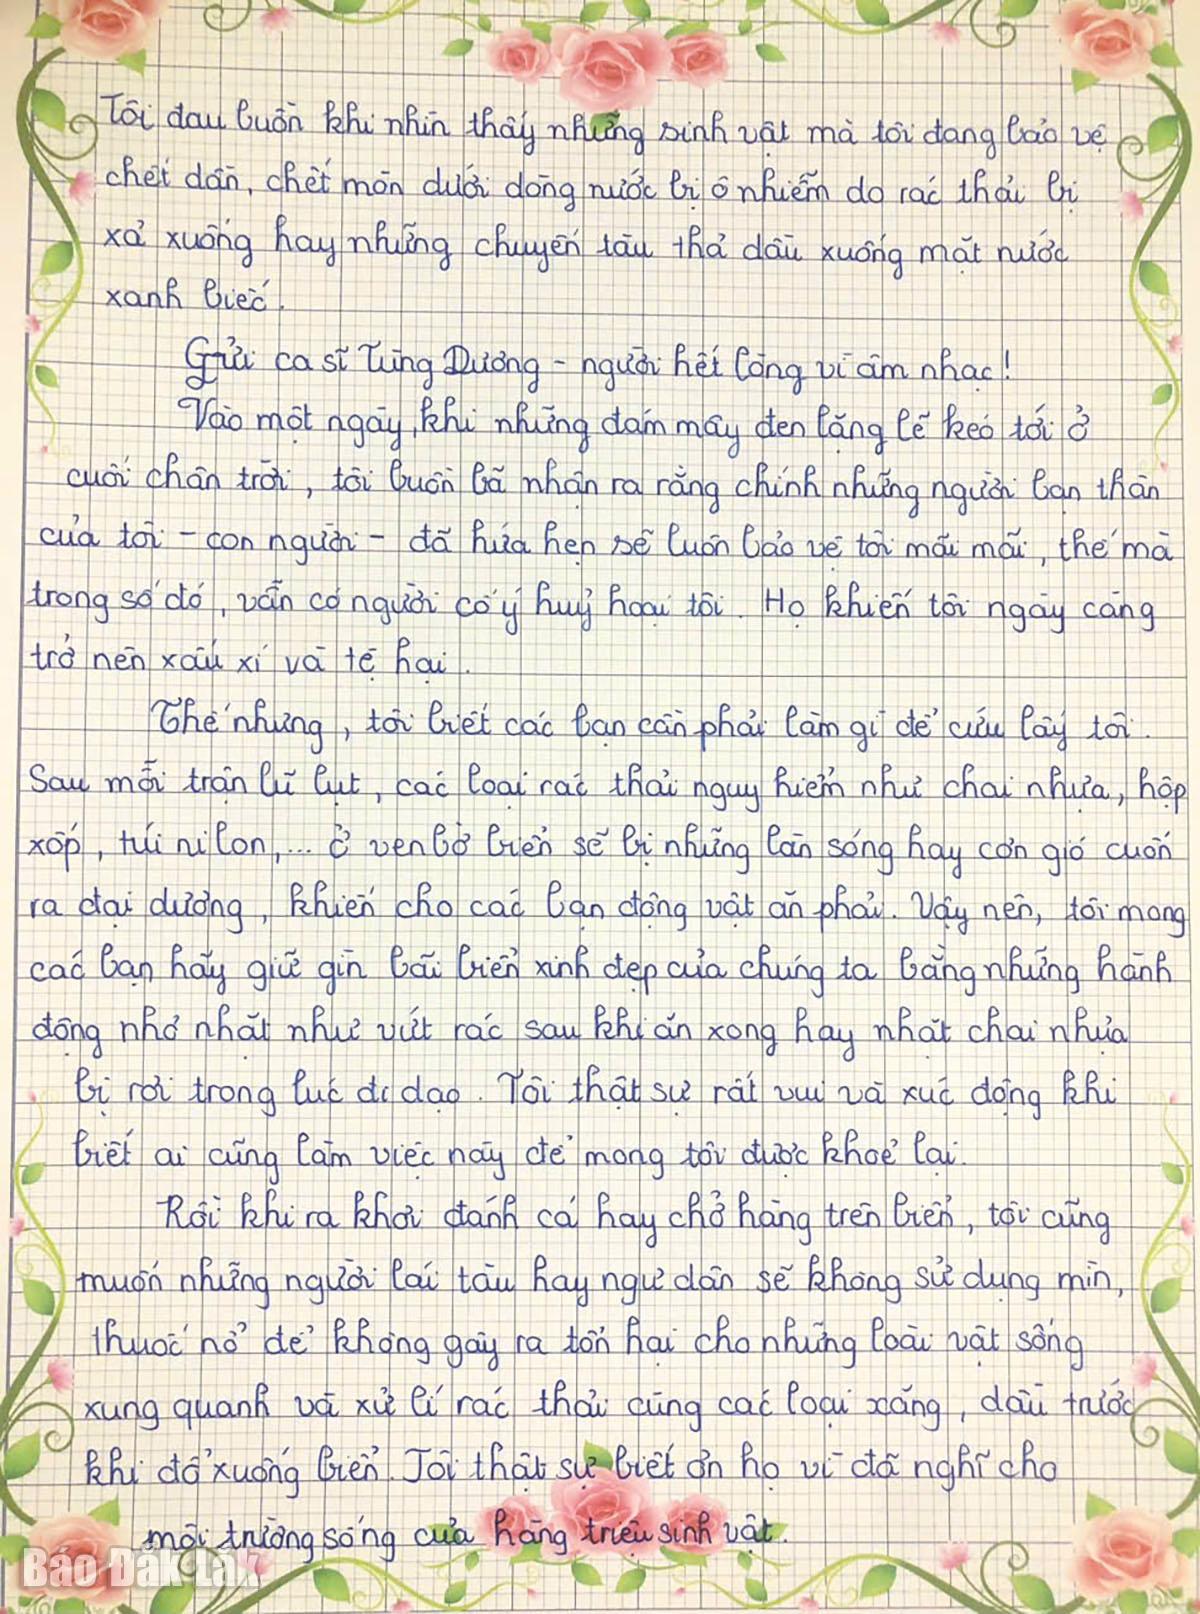 Tôi đau buồn khi nhìn thấy những sinh vật mà tôi đang bảo vệ
chết dần, chết mòn dưới dòng nước bị ô nhiễm do rác thải bị
xả xuống hay những chuyến tàu thả dầu xuống mặt nước
xanh biếc.
Gửi ca sĩ Tùng Dương - người hết lòng vì âm nhạc!
Vào một ngày, khi những đám mây đen lặng lẽ kéo tới ở
cuối chân trời, tôi buồn bã nhận ra rằng chính những người bạn thân
của tôi - con người - đã hứa hẹn sẽ luôn bảo vệ tôi mãi mãi, thế mà
trong số đó, vẫn có người cố ý huỷ hoại tôi. Họ khiến tôi ngày càng
trở nên xấu xí và tệ hại.
Thế nhưng, tôi biết các bạn cần phải làm gì để cứu lấy tôi.
Sau mỗi trận lũ lụt, các loại rác thải nguy hiểm như chai nhựa, hộp
xốp, túi ni lon,... ở ven bờ biển sẽ bị những làn sóng hay cơn gió cuốn
ra đại dương, khiến cho các bạn động vật ăn phải. Vậy nên, tôi mong
các bạn hãy giữ gìn bãi biển xinh đẹp của chúng ta bằng những hành
động nhỏ nhặt như vứt rác sau khi ăn xong hay nhặt chai nhựa
bị rơi trong lúc đi dạo. Tôi thật sự rất vui và xúc động khi
biết ai cũng làm việc này để mong tôi được khoẻ lại.
Rồi khi ra khơi đánh cá hay chở hàng trên biển, tôi cũng
muốn những người lái tàu hay ngư dân sẽ không sử dụng mìn,
thuốc nổ để không gây ra tổn hại cho những loài vật sống
xung quanh và xử lí rác thải cùng các loại xăng, dầu trước
khi đổ xuống biển. Tôi thật sự biết ơn họ vì đã nghĩ cho
môi trường sống của hàng triệu sinh vật.
Báo Đắk Lắk